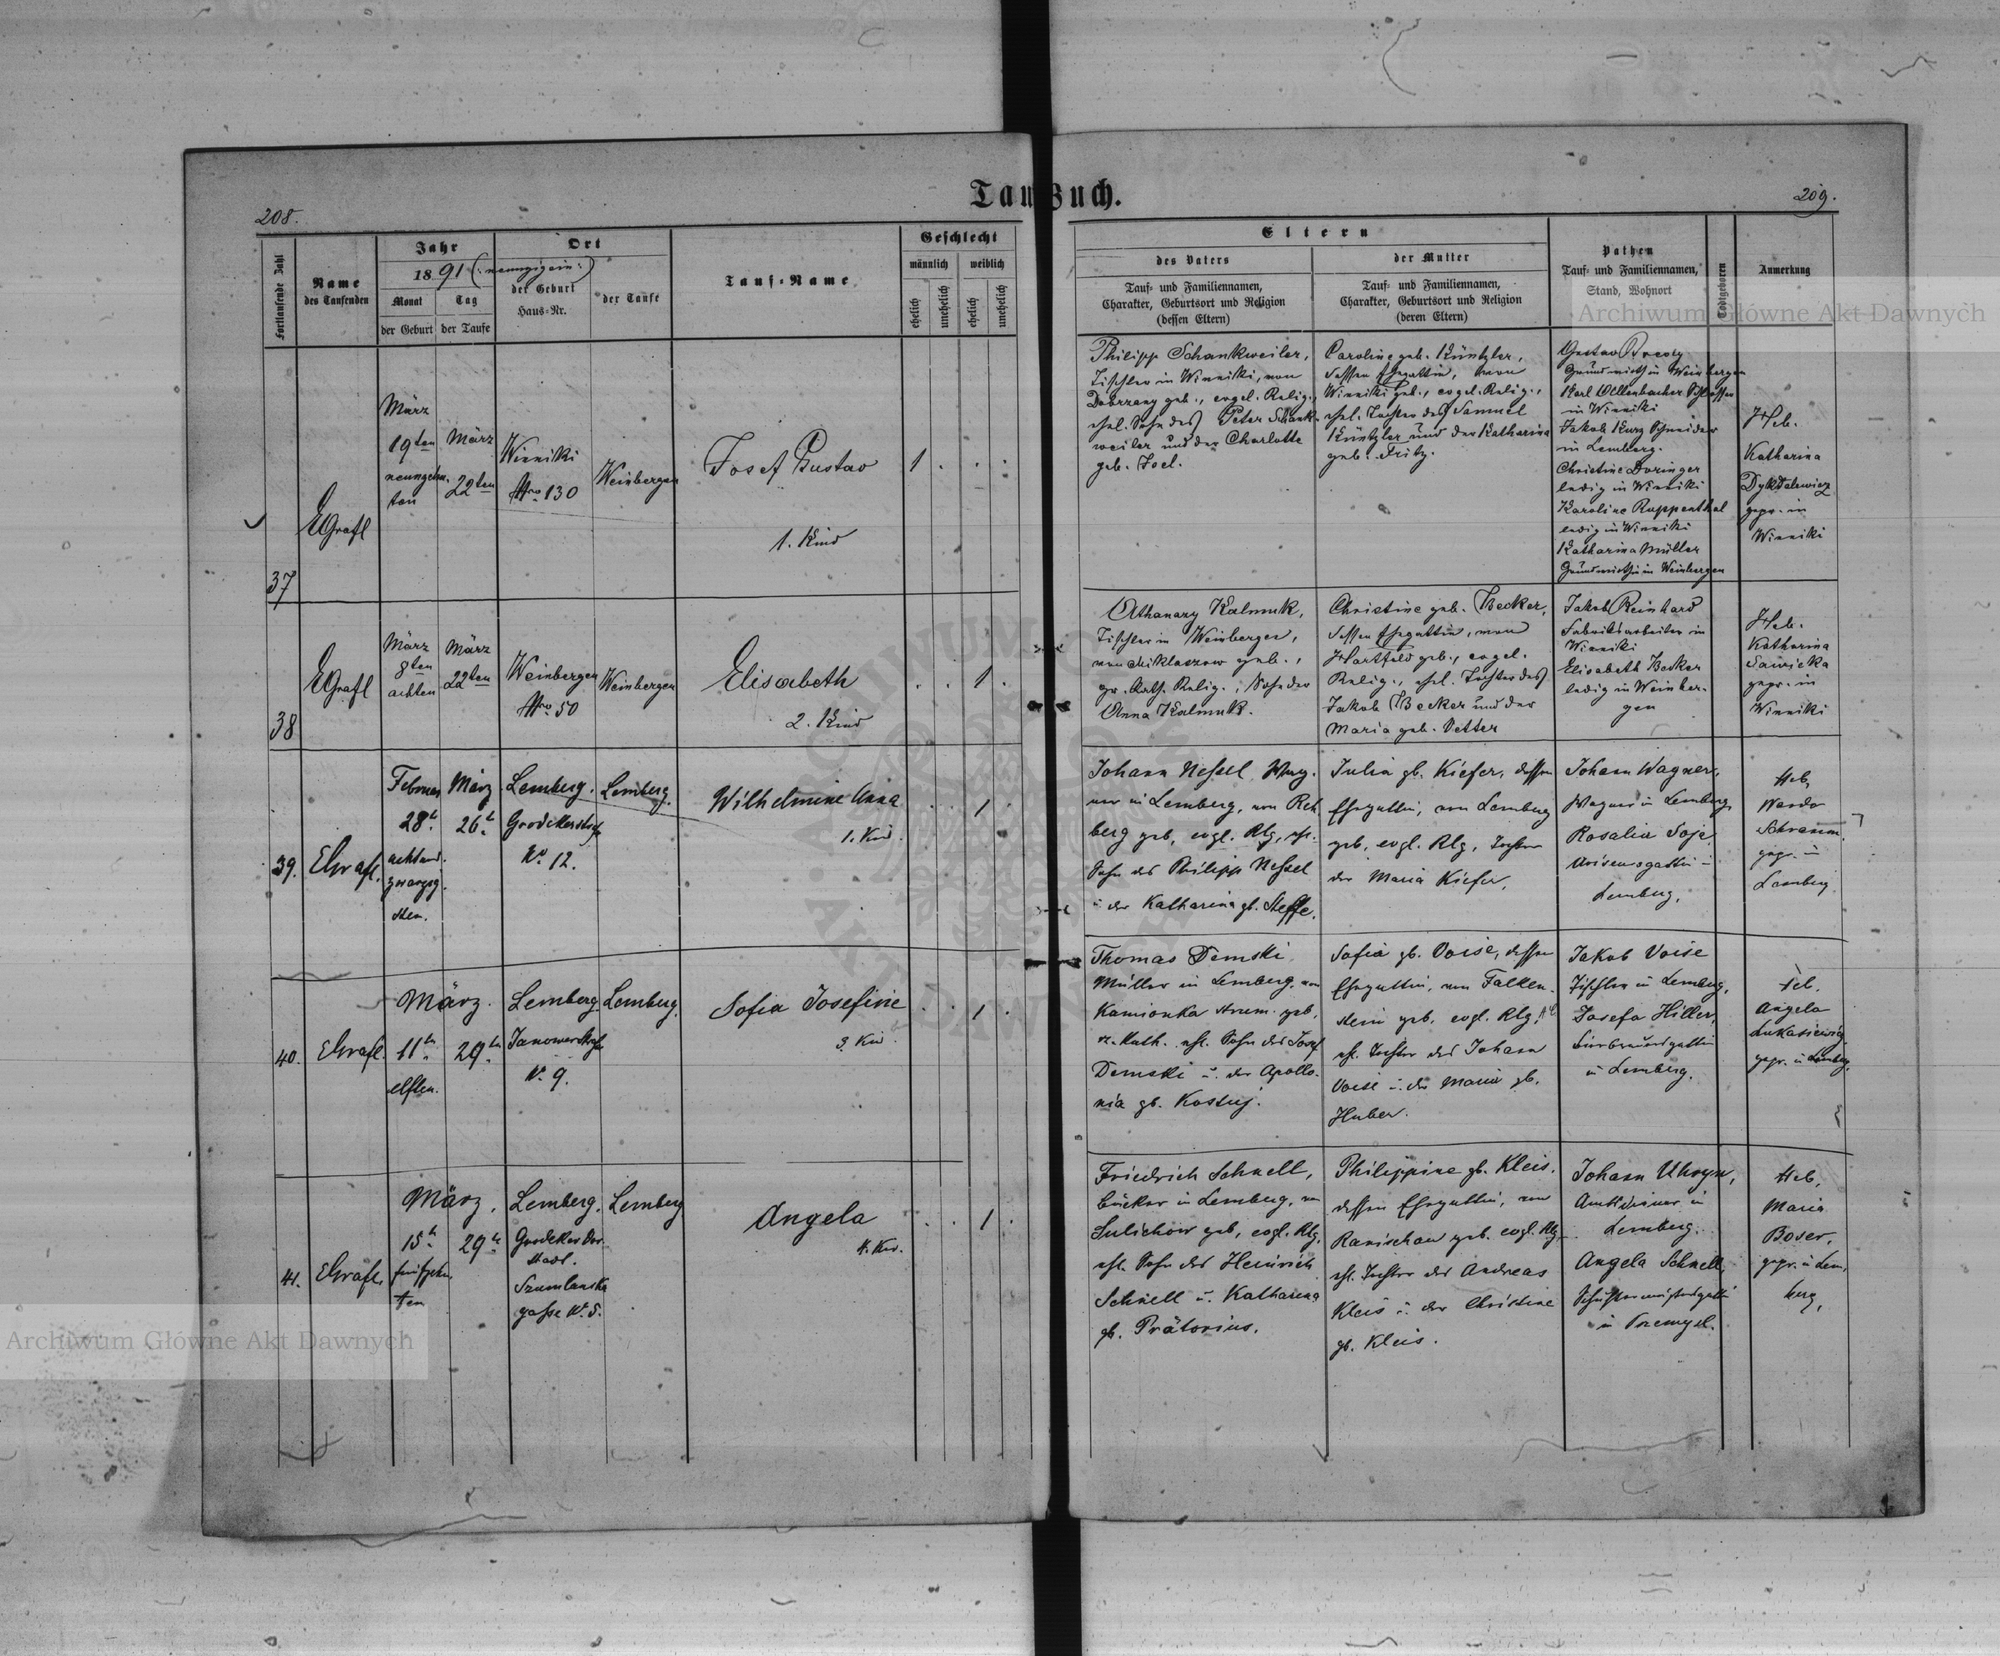 Tauf-Buch.
208.
209.
Fortlaufende Zahl
Name
des Taufenden
Jahr
1891 (:neunzigein:)
Monat
Tag
der Geburt
der Taufe
Ort
der Geburt
Haus-Nr.
der Taufe
Tauf-Name
Geschlecht
männlich
weiblich
ehelich
unehelich
ehelich
unehelich
Eltern
des Vaters
Tauf- und Familiennamen,
Charakter, Geburtsort und Religion
(dessen Eltern)
der Mutter
Tauf- und Familiennamen,
Charakter, Geburtsort und Religion
(deren Eltern)
Pathen
Tauf- und Familiennamen,
Stand, Wohnort
Todtgeboren
Anmerkung
37
EGrafl
März
19ten
neunzehn
ten
März
22ten
Winniki
Nro 130
Weinbergen
Josef Gustav
1. Kind
1
Philipp Schankweiler,
Tischler in Winniki, von
Dobrzany geb., evgel. Relig.,
ehel. Sohn des Peter Schank-
weiler und der Charlotte
geb. Joel.
Caroline geb. Küntzler,
dessen Ehegattin, von
Winniki geb., evgel. Relig.,
ehel. Tochter des Samuel
Küntzler und der Katharina
geb. Fritz.
Gustav
Grundwirth in Weinbergen
Karl Ollenbacher Schlosser
in Winniki
Jakob Kurz Schneider
in Lemberg.
Christine Doringer
ledig in Winniki
Karoline Ruppenthal
ledig in Winniki
Katharina Müller
Grundwirthin in Weinbergen
Heb.
Katharina
gepr. in
Winniki
38
EGrafl
März
8ten
achten
März
22ten
Weinbergen
Nro 50
Weinbergen
Elisabeth
2. Kind
1
Athanazy Kalmuk,
Tischler in Weinbergen,
von Mikloszow geb.,
gr. kath. Relig., Sohn der
Anna Kalmuk.
Christine geb. Becker,
dessen Ehegattin, von
Hartfeld geb., evgel.
Relig., ehel. Tochter des
Jakob Becker und der
Maria geb. Vetter
Jakob Reinhard
Fabriksarbeiter in
Winniki
Elisabeth Becker
ledig in Weinber-
gen
Heb.
Katharina
Sawicka
gepr. in
Winniki
39.
EGrafl.
Februar
28t.
achtund
zwanzig
sten.
März
26t.
Lemberg.
Grodekerstrße
No 12.
Lemberg.
Wilhelmine Anna
1. Kind.
1
Johann Nessel, Wag-
ner in Lemberg, von Reh-
berg geb, evgl. Rlg, ehl.
Sohn des Philipp Nessel
u. der Katharina gb. Steffe.
Julia gb. Kiefer, dessen
Ehegattin, von Lemberg
geb, evgl. Rlg, Tochter
der Maria Kiefer.
Johann Wagner,
Wagner in Lemberg,
Rosalia Soja,
in
Lemberg.
Heb,
Wanda
Schramm.
gepr. in
Lemberg
40.
EGrafl.
März.
11tn.
elften.
29tn.
Lemberg.
Janowerstrße
No 9.
Lemberg.
Sofia Josefine
3. Kind.
1
Thomas Demski
Müller in Lemberg, von
Kamionka strum. geb,
r. kath. ehl. Sohn des Josef
Demski u. der Apollo-
nia gb. Kostuj.
Sofia gb. Voise, dessen
Ehegattin, von Falken-
stein geb. evgl. Rlg.,
ehl. Tochter des Johann
Voise u. der Maria gb.
Huber.
Jakob Voise
Tischler in Lemberg,
Josefa Hiller,
Bierbrauersgattin
in Lemberg.
Heb.
Angela
Lukasiewicz,
gepr. in Lemberg.
41.
EGrafl.
März.
15tn.
fünfzehn
ten
29tn.
Lemberg.
Grodeker Vor-
stadt.
Szumlanska
gasse No 5.
Lemberg
Angela
4. Kind.
1
Friedrich Schnell,
Bäcker in Lemberg, von
Sulichow geb, evgl. Rlg,
ehl. Sohn des Heinrich
Schnell u. Katharina
gb. Prätorius.
Philippine gb. Kleis.
dessen Ehegattin, von
Ranischau geb. evgl. Rlg,
ehl. Tochter des Andreas
Kleis u. der Christine
gb. Kleis.
Johann Uhryn,
Amtsdiener in
Lemberg.
Angela Schnell,
Schuhmachersgattin
in Przemysl.
Heb,
Maria
Boser,
gepr. in Lem-
berg,
Archiwum Główne Akt Dawnych
Archiwum Główne Akt Dawnych